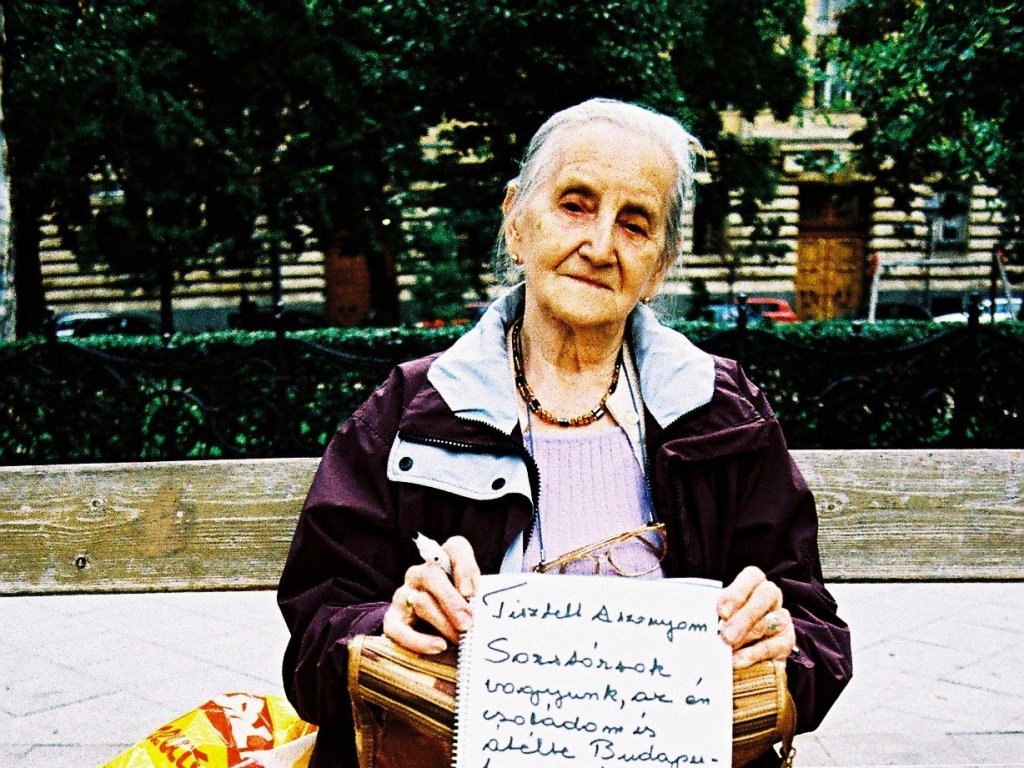 Tisztelt Asszonyom!
Sorstársak
vagyunk, az én
családom is
átélte Budapes-